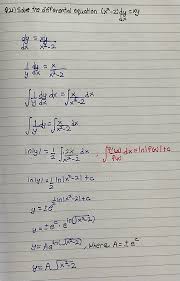 Q(21) Solve the differential equation (x²-2)dy/dx = xy
dy/dx = xy/x²-2
1/y dy/dx = x/x²-2
∫1/y dy/dx dx = ∫x/x²-2 dx
∫1/y dy = ∫x/x²-2 dx
ln|y| = 1/2 ∫2x/x²-2 dx, ∫f'(x)/f(x) dx = ln|f(x)|+c
ln|y| = 1/2 ln|x²-2|+c
y = ±e^(1/2 ln|x²-2|+c)
y = ±e^c · e^(ln(√x²-2))
y = Ae^(ln(√x²-2)), where A = ±e^c
y = A√x²-2